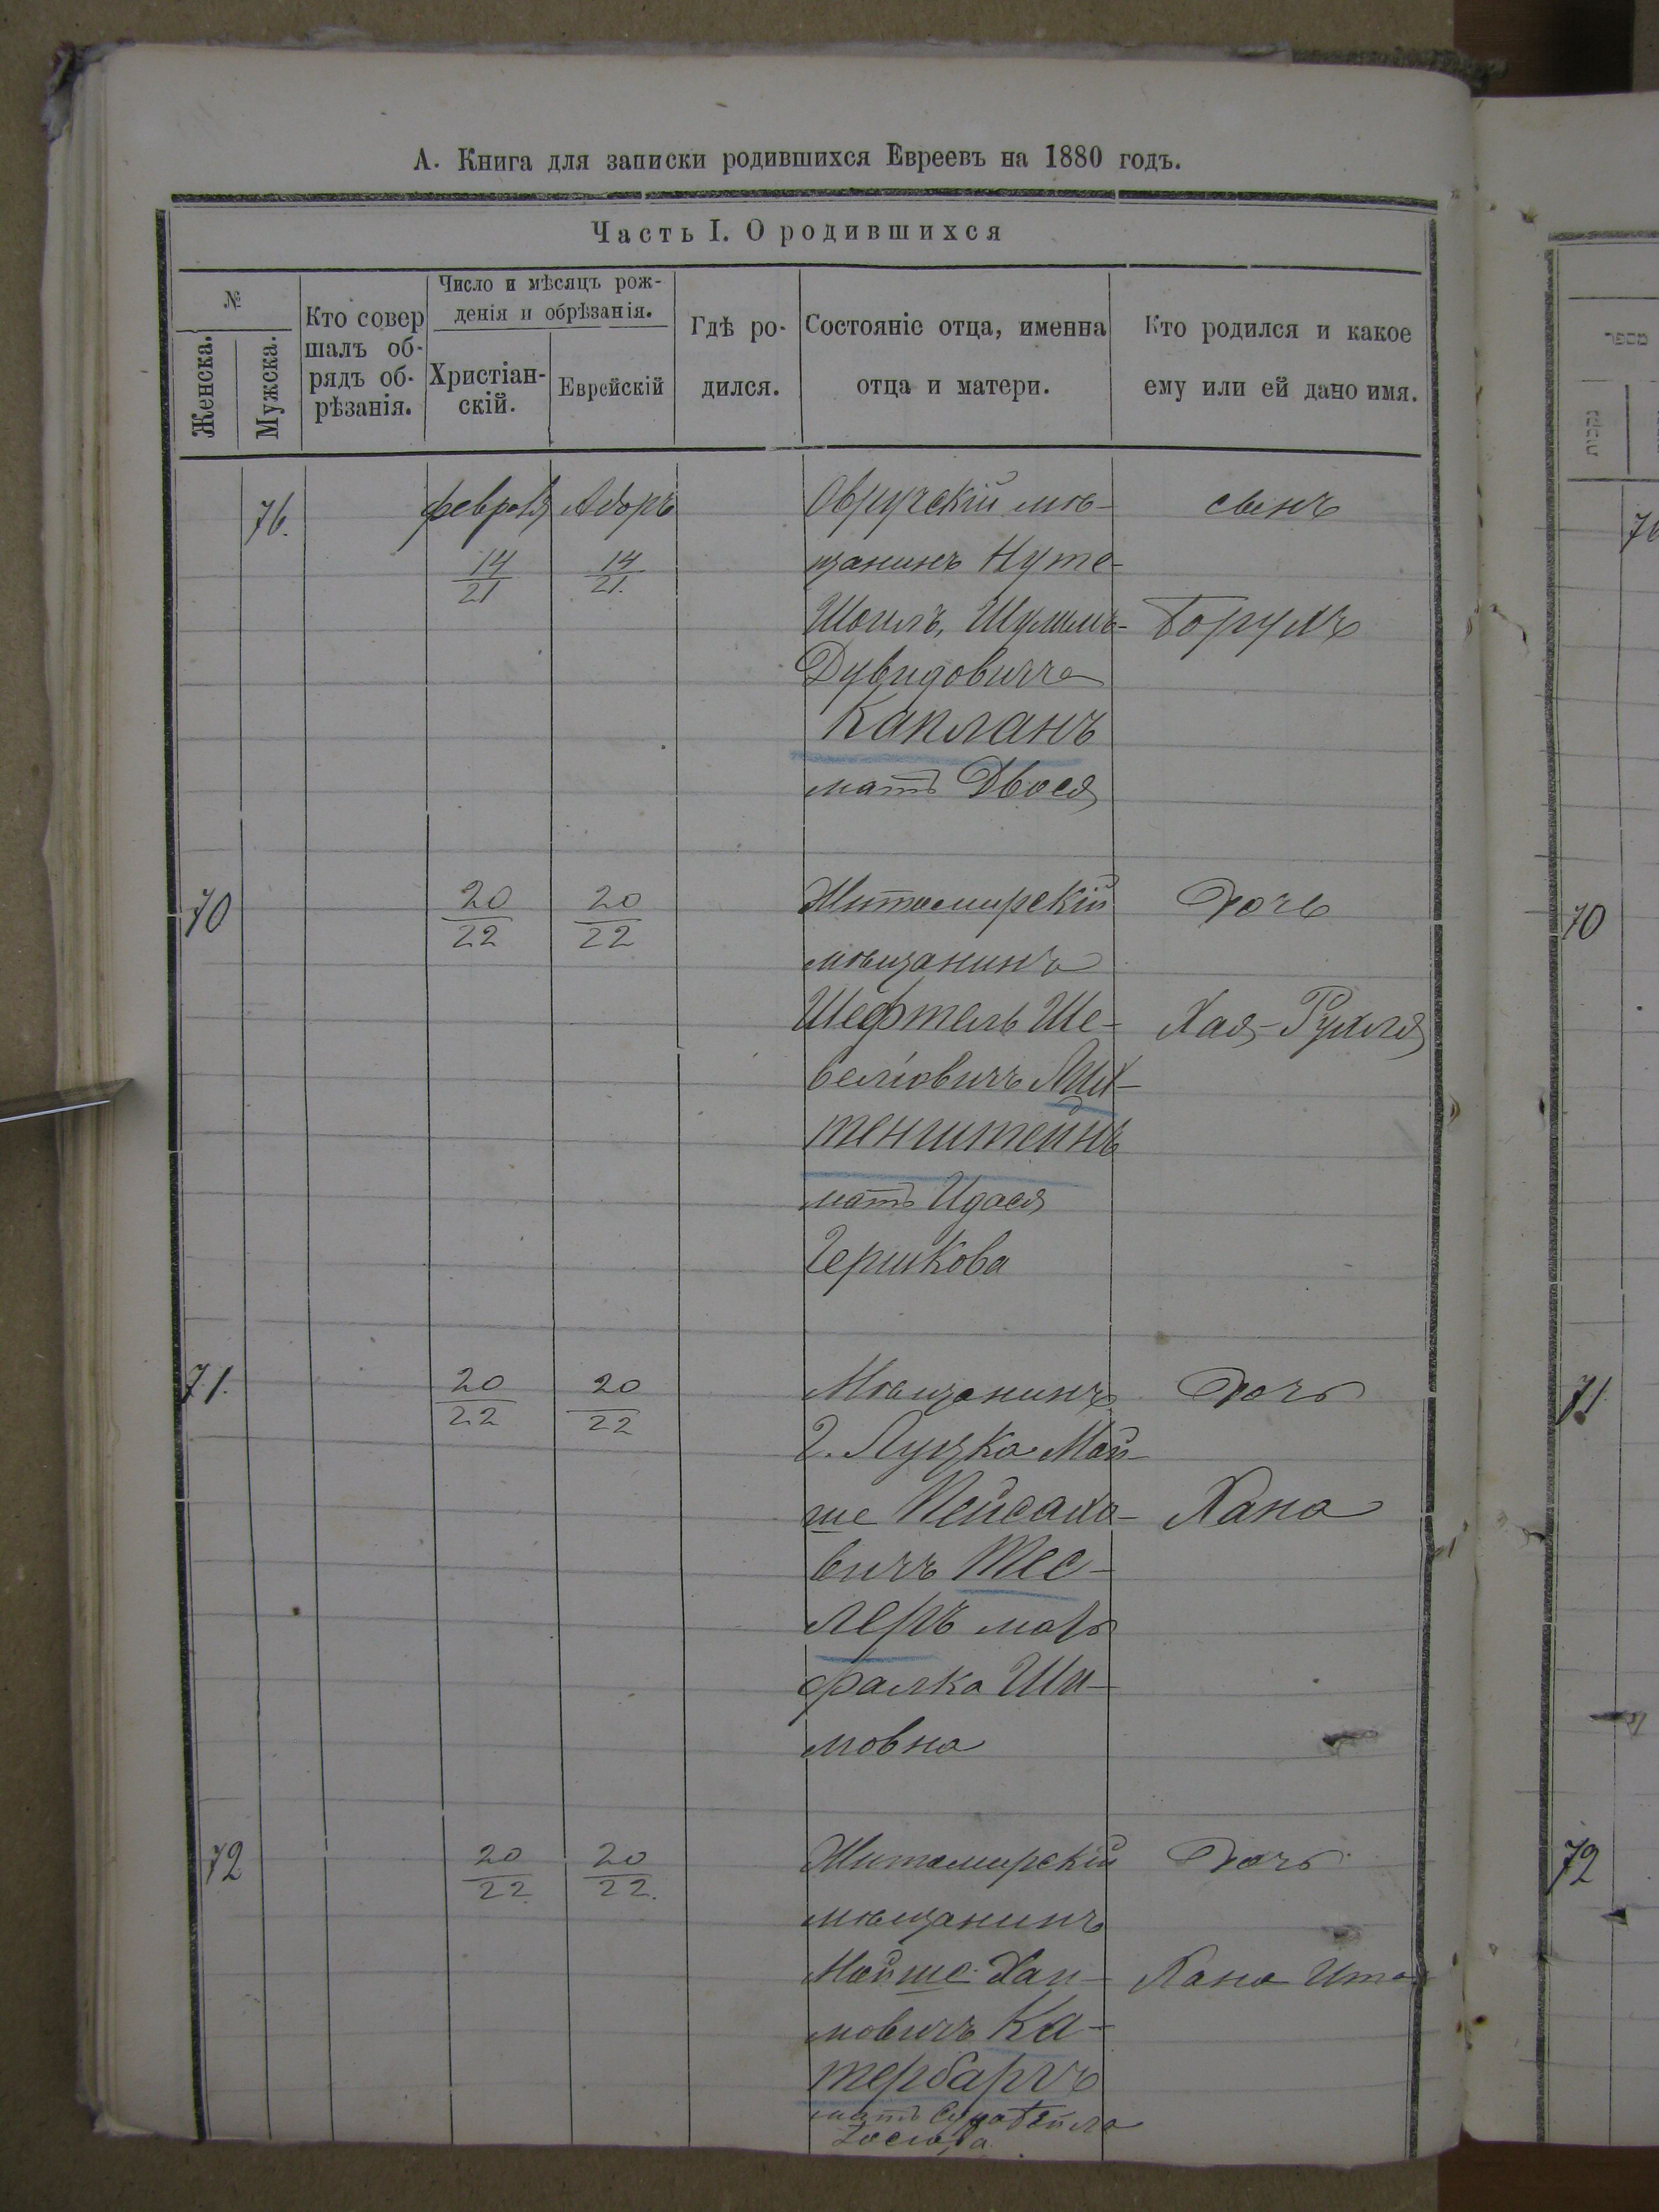 А. Книга для записки родившихся Евреевъ на 1880 годъ.
Часть I. О родившихся
№
Женска.
Мужска.
Кто совер
шалъ об-
рядъ об-
рѣзанія.
Число и мѣсяцъ рож-
денія и обрѣзанія.
Христіан-
скій.
Еврейскій
Гдѣ ро-
дился.
Состояніе отца, именна
отца и матери.
Кто родился и какое
ему или ей дано имя.
76.
февраля
14
21
Адоръ
14
21.
Овручскій мѣ-
щанинъ Нуте-
Шоилъ, Шулимъ-
Дувидовичъ
Капланъ
мать Двося
сынъ
Борухъ
70
20
22
20
22
Житомирскій
мѣщанинъ
Шефтель Ше-
веліовичъ Лих-
тенштейнъ
мать Идася
Гершкова
дочь
Хая-Рухля
71.
20
22
20
22
Мѣщанинъ
г. Луцка Мой-
ше Пейсахо-
вичъ Тес-
леръ мать
Фалка Ши-
мовна
дочь
Хана
72
20
22.
20
22.
Житомирскій
мѣщанинъ
Мойше Хаи-
мовичъ Ка-
тербаргъ
мать Сура Бейла
Йосіова
дочь
Хана Ита
מספר
76
70
71
72